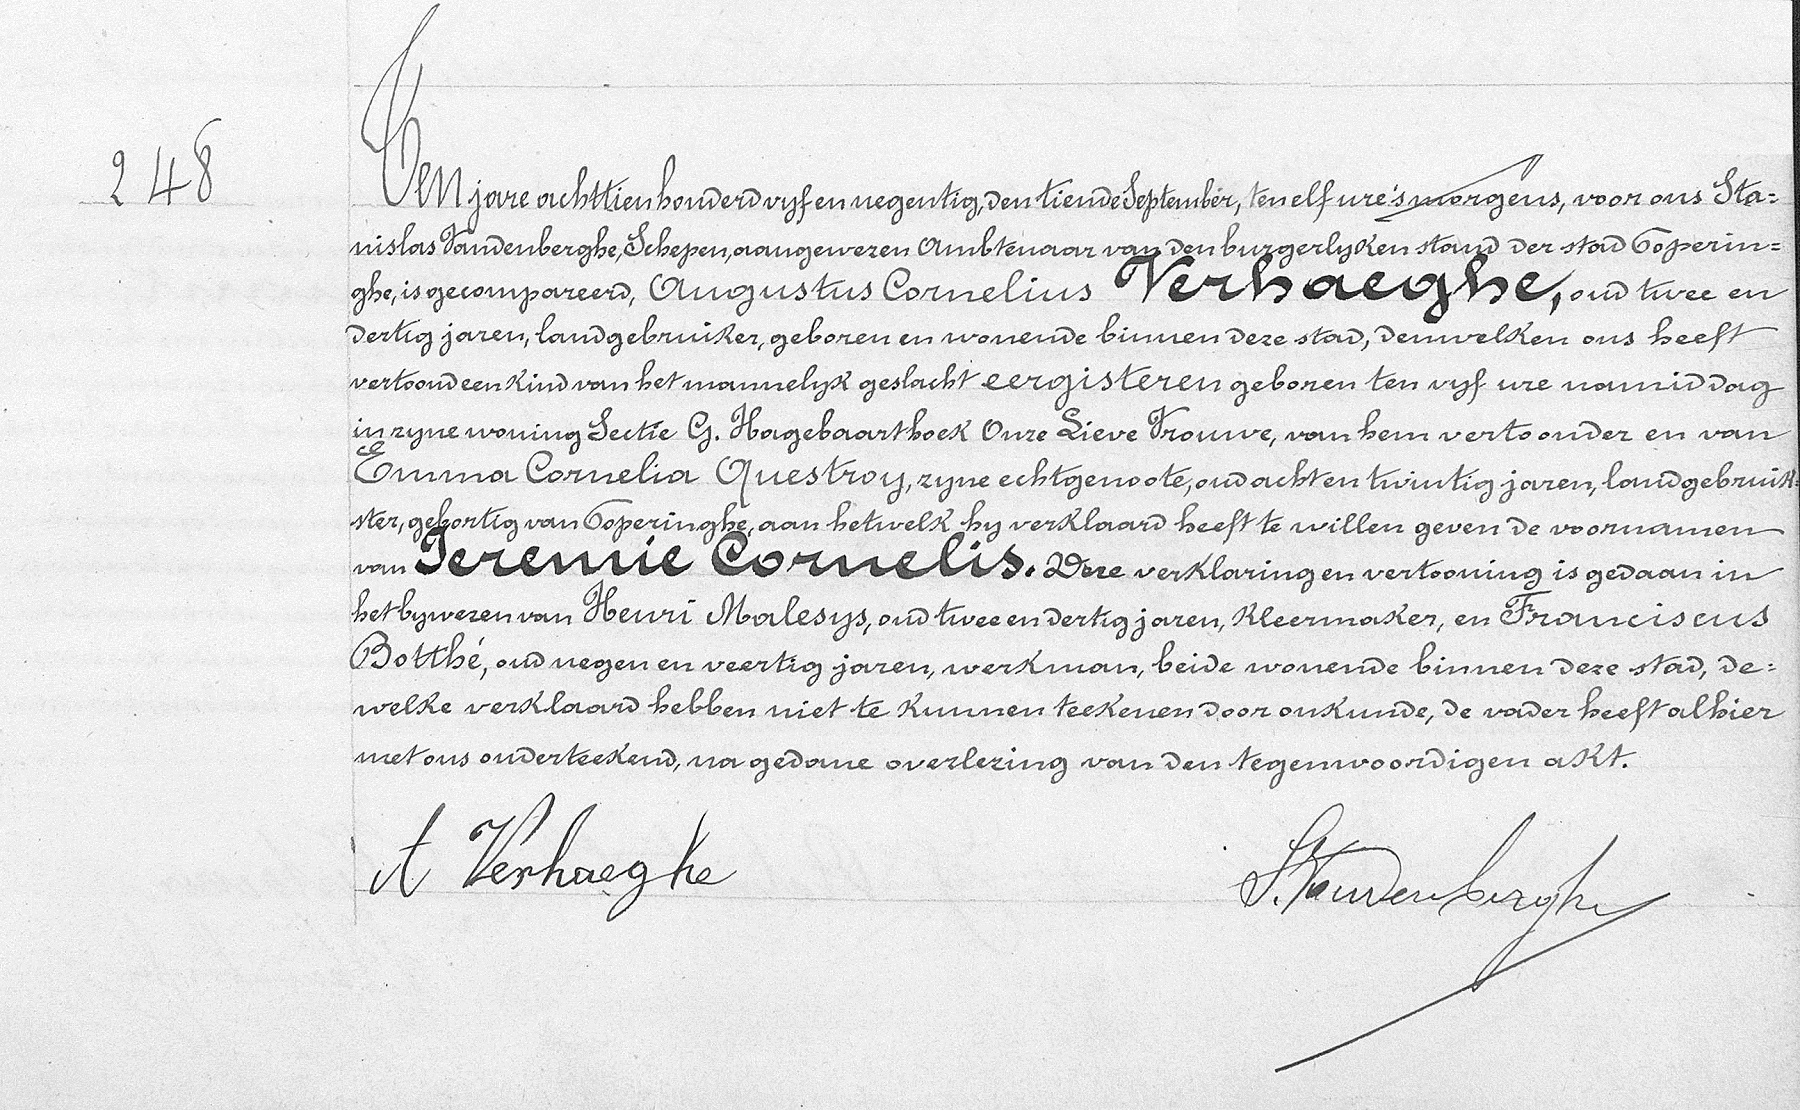 248
Ten jare achttien honderd vyf en negentig, den tiende September, ten elf ure 's morgens, voor ons Sta=
nislas Vandenberghe, Schepen, aangewezen Ambtenaar van den burgerlyken stand der stad Poperin=
ghe, is gecompareerd, Augustus Cornelius Verhaeghe, oud twee en
dertig jaren, landgebruiker, geboren en wonende binnen deze stad, denwelken ons heeft
vertoond een kind van het mannelyk geslacht eergisteren geboren ten vyf ure namiddag
in zyne woning Sectie G. Hagebaarthoek Onze Lieve Vrouwe, van hem vertoonder en van
Emma Cornelia Questroy, zyne echtgenoote, oud acht en twintig jaren, landgebruik=
ster, gebortig van Poperinghe, aan hetwelk hy verklaard heeft te willen geven de voornamen
van Jeremie Cornelis. Deze verklaring en vertooning is gedaan in
het bywezen van Henri Malesys, oud twee en dertig jaren, kleermaker, en Franciscus
Botthé, oud negen en veertig jaren, werkman, beide wonende binnen deze stad, de=
welke verklaard hebben niet te kunnen teekenen door onkunde, de vader heeft alhier
met ons onderteekend, na gedane overlezing van den tegenwoordigen akt.
A Verhaeghe
S. Vandenberghe